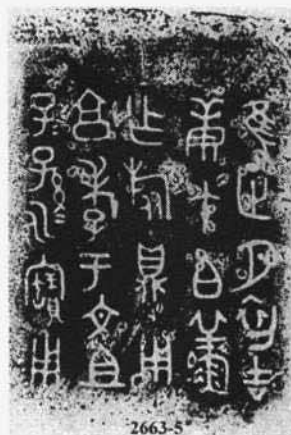 隹正月初吉
庚午白鮮
乍旅鼎用
享孝于文且
子=孫=永寶用
2663-5